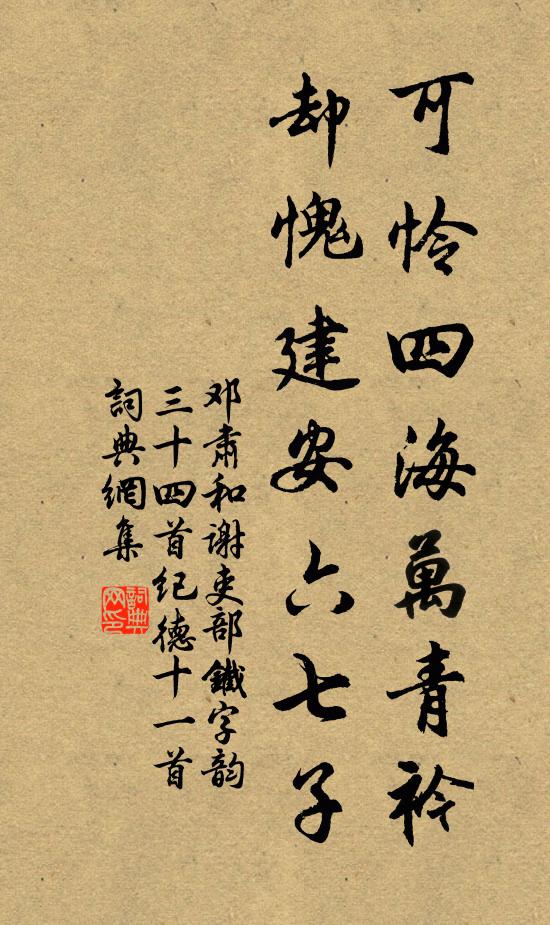 可怜四海萬青衿
却愧建安六七子
邓肅和谢吏部鐵字韵
三十四首纪德十一首
詞典網集
詞典
网印